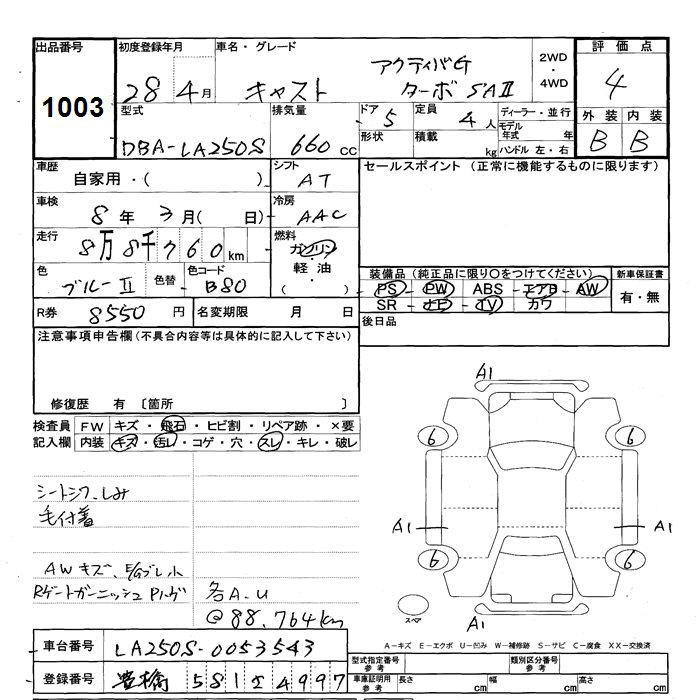 出品番号 初度登録年月 車名・グレード 2WD・4WD 評価点
1003 28 4月 キャスト アクティバG ターボ SAⅡ 4
型式 排気量 ドア 5 定員 4人 ディーラー・並行 外装 内装
DBA-LA250S 660cc 形状 積載 kg モデル年式 年 ハンドル 左・右 B B
車歴 自家用・( ) シフト AT セールスポイント (正常に機能するものに限ります)
車検 8年 3月( 日) 冷房 AAC
走行 8万8千760km 燃料 ガソリン 軽油 ( )
色 ブルーⅡ 色替 色コード B80 装備品 (純正品に限り○をつけてください) 新車保証書
PS PW ABS エアB AW 有・無
SR ナビ TV カワ
R券 8550円 名変期限 月 日 後日品
注意事項申告欄(不具合内容等は具体的に記入して下さい)
修復歴 有 〔箇所 〕
検査員 FW キズ・飛石・ヒビ割・リペア跡・×要
記入欄 内装 キズ・汚レ・コゲ・穴・スレ・キレ・破レ
A1
6 6
シートシワ、しみ
毛付着
A1 A1
6 6
AWキズ、E/Gブレ小
Rゲートガーニッシュ 各A.U
@88.764km
スペア
A1
車台番号 LA250S-0053543
A-キズ E-エクボ U-凹み W-補修跡 S-サビ C-腐食 XX-交換済
登録番号 豊橋 581 4997
型式指定番号 参考 類別区分番号 参考
車庫証明用 参考 長さ cm 幅 cm 高さ cm